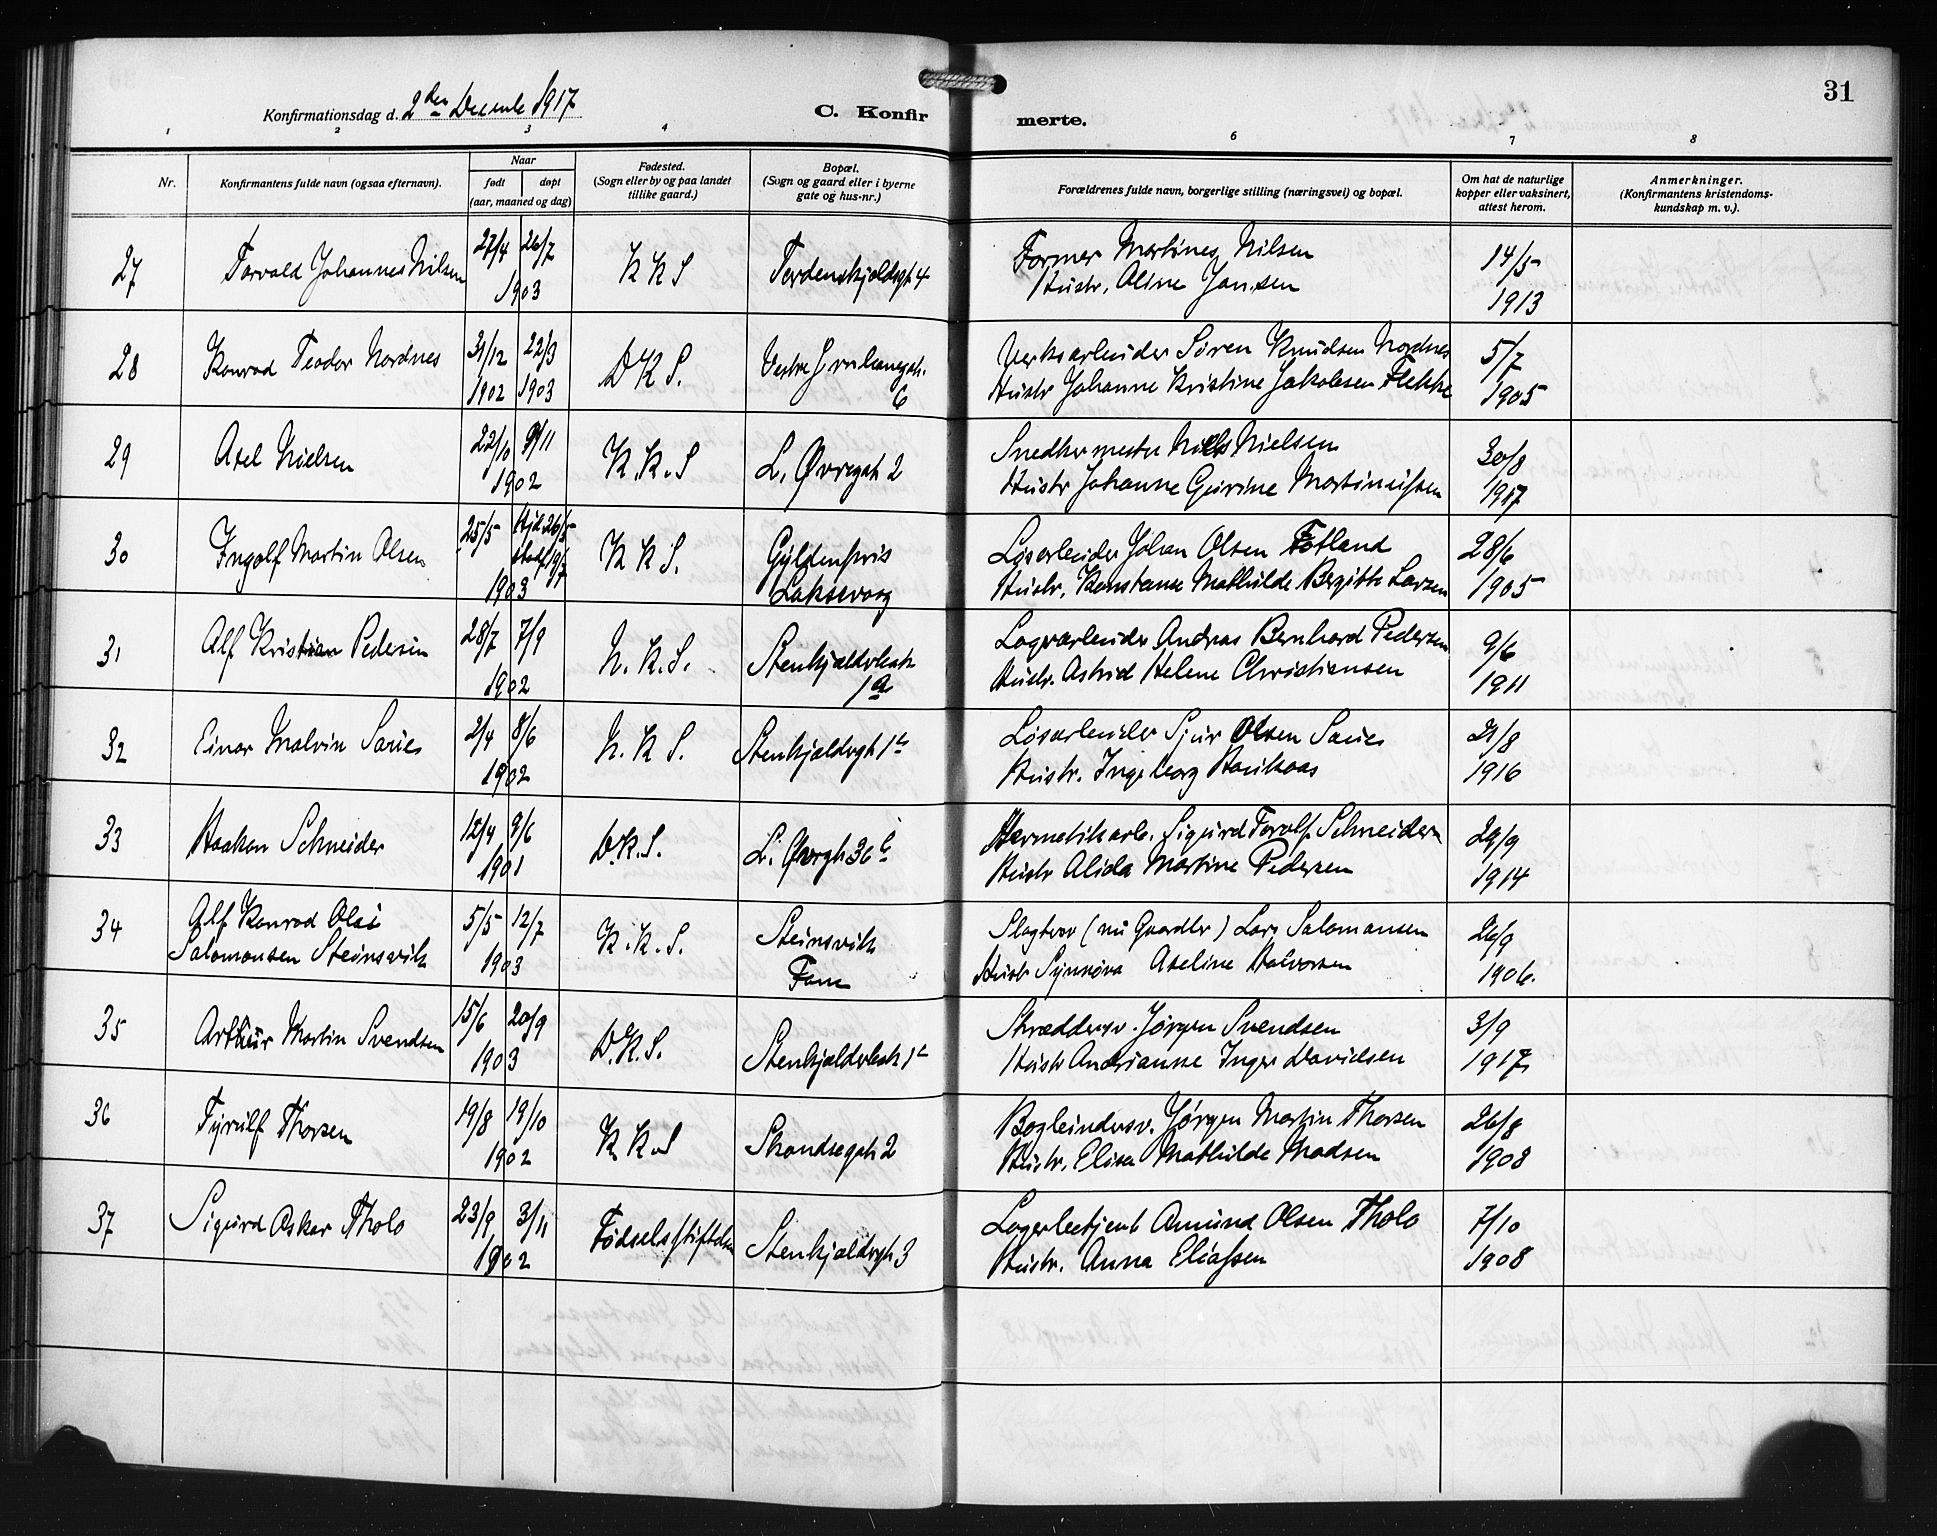 31
Konfirmationsdag d. 2den Decembr 1917
C. Konfirmerte.
1 2 3 4 6 7 8
Nr.
Konfirmantens fulde navn (ogsaa efternavn).
Naar
født
døpt
(aar, maaned og dag)
Fødested.
(Sogn eller by og paa landet
tillike gaard.)
Bopæl.
(Sogn og gaard eller i byerne
gate og hus-nr.)
Forældrenes fulde navn, borgerlige stilling (næringsvei) og bopæl.
Om hat de naturlige
kopper eller vaksinert,
attest herom.
Anmerkninger.
(Konfirmantens kristendoms-
kundskap m. v.).
27 Torvald Johannes Nilsen 27/4 26/7 1903 K K S Tordenskjoldsgt 4
Former Martines Nilsen 14/5
Hustr. Aline Jansen 1913
28 Konrad Teodor Nordnes 31/12 1902 22/3 1903 D K S. Vestre 6
Verksarbeider Søren Knudsen Nordnes 5/7
Hustr Johanne Kristine Jakobsen Flekke 1905
29 Axel Nielsen 22/10 9/11 1902 K. K. S L. Øvregt 2
Snedkermester Niels Nielsen 30/8
Hustr Johanne Gurine Martinussen 1917
30 Ingolf Martin Olsen 25/5 Hjd 26/5 stadf 19/7 1903 K K S. Gyldenpris
Laksevaag
Løsarbeider Johan Olsen Fotland 28/6
Hustr. Konstanse Mathilde Bergitte Larsen 1905
31 Alf Kristian Pedersen 28/7 7/9 1902 N. K. S. Stenkjælderbak
1a
Andreas Bernhard Pedersen 9/6
Hustr. Astrid Helene Christiansen 1911
32 Einar Malvin Sanes 2/4 8/6 1902 N. K S. Stenkjældergt 1b
Løsarbeider Sjur Olsen Sanes 21/8
Hustr. Ingeborg Haukaas 1916
33 Haakon Schneider 12/4 9/6 1901 D.K.S. L. Øvregt 36 b
Hermetikarb. Sigurd Torolf Schneider 29/9
Hustr Alida Martine Pedersen 1914
34 Alf Konrad Olai
Salomonsen Steinsvik 5/5 12/7 1903 K. K. S. Steinsvik
Fane
Slagtersv (nu Gaardbr) Lars Salomonsen 26/9
Hustr Synnøva Aseline Halvorsen 1906.
35 Arthur Martin Svendsen 15/6 20/9 1903 D.K.S. Stenkjælderbak 1b
Skreddersv. Jørgen Svendsen 3/9
Hustr Andrianne Inger Davidsen 1917
36 Tyrulf Thorsen 19/8 19/10 1902 K K S Strandsegt 2
Bogbindersv. Jørgen Martin Thorsen 26/8
Hustr. Elisa Mathilde Madsen 1908
37 Sigurd Asker Tholo 23/9 3/11 1902 Fødselsstiftelsen Stenkjældergt 3
Lagerbetjent Amund Olsen Tholo 7/10
Hustr. Anna Eliassen 1908